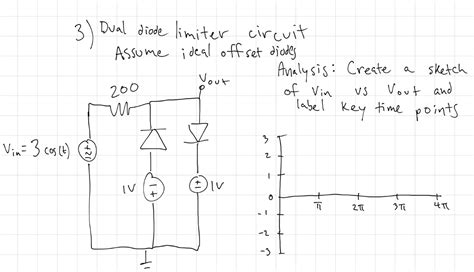 3) Dual diode limiter circuit
Assume ideal offset diodes
Analysis: Create a sketch
of Vin vs Vout and
label key time points
Vout
200
Vin = 3 cos(t)
1V
1V
3
2
1
0
-1
-2
-3
π
2π
3π
4π